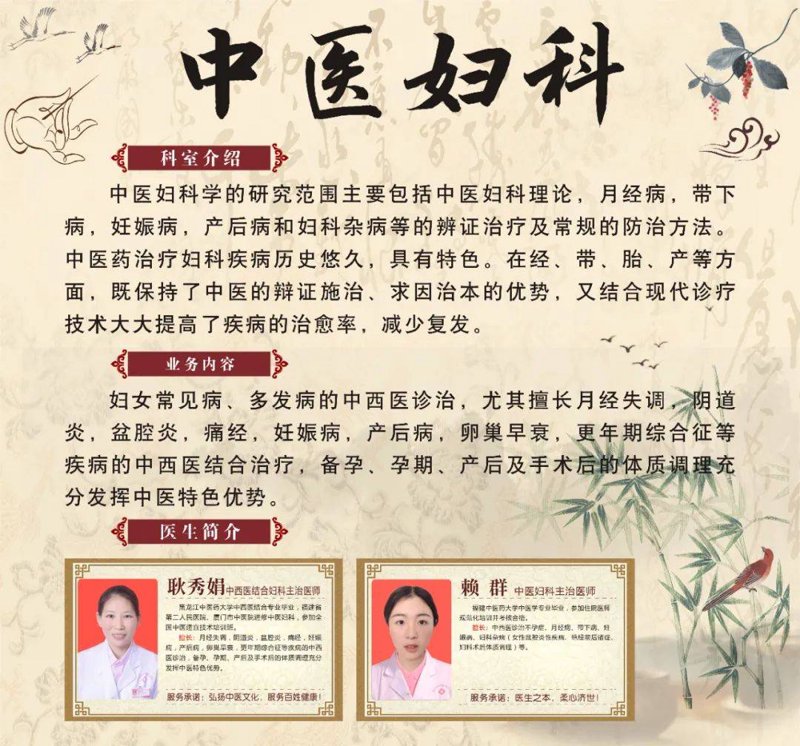 中医妇科
科室介绍
中医妇科学的研究范围主要包括中医妇科理论，月经病，带下
病，妊娠病，产后病和妇科杂病等的辨证治疗及常规的防治方法。
中医药治疗妇科疾病历史悠久，具有特色。在经、带、胎、产等方
面，既保持了中医的辩证施治、求因治本的优势，又结合现代诊疗
技术大大提高了疾病的治愈率，减少复发。
业务内容
妇女常见病、多发病的中西医诊治，尤其擅长月经失调，阴道
炎，盆腔炎，痛经，妊娠病，产后病，卵巢早衰，更年期综合征等
疾病的中西医结合治疗，备孕、孕期、产后及手术后的体质调理充
分发挥中医特色优势。
医生简介
耿秀娟 中西医结合妇科主治医师
黑龙江中医药大学中西医结合专业毕业，福建省
第二人民医院，厦门市中医院进修中医妇科，参加全
国中医适宜技术培训班。
擅长：月经失调，阴道炎，盆腔炎，痛经，妊娠
病，产后病，卵巢早衰，更年期综合征等疾病的中西
医诊治，备孕、孕期、产后及手术后的体质调理充分
发挥中医特色优势。
服务承诺：弘扬中医文化，服务百姓健康！
赖 群 中医妇科主治医师
福建中医药大学中医学专业毕业，参加住院医师
规范化培训并考核合格。
擅长：中西医诊治不孕症、月经病、带下病、妊
娠病、妇科杂病（女性盆腔炎性疾病、绝经前后诸症、
妇科术后体质调理）等。
服务承诺：医生之本，柔心济世！